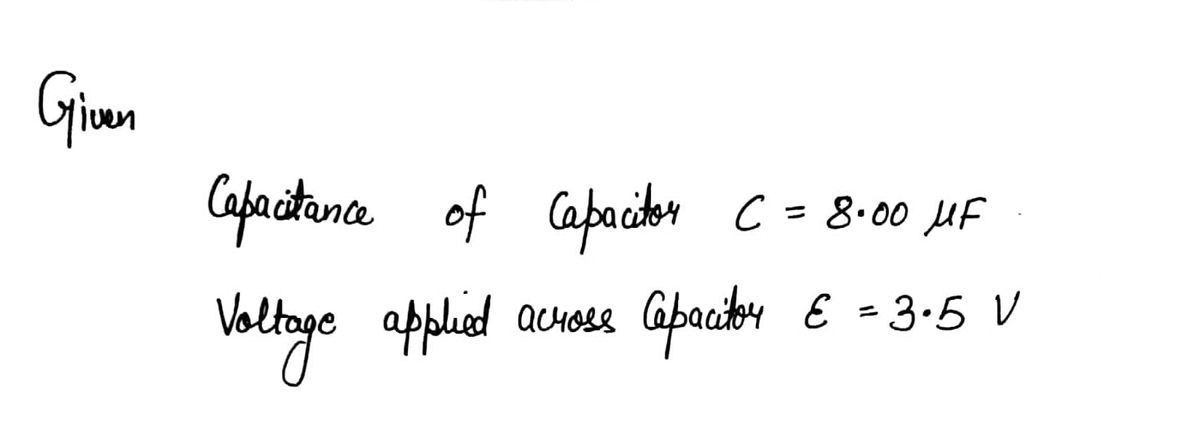 Given
Capacitance of Capacitor C = 8.00 µF
Voltage applied across Capacitor ε = 3.5 V